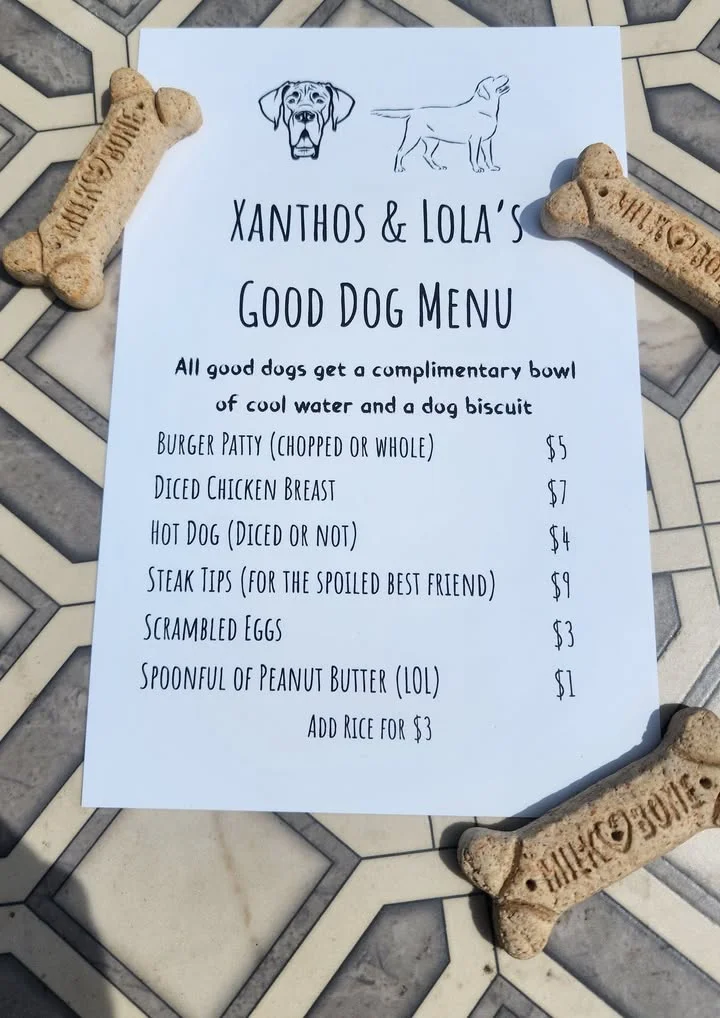 Xanthos & Lola's
Good Dog Menu
All good dogs get a complimentary bowl
of cool water and a dog biscuit
Burger Patty (chopped or whole) $5
Diced Chicken Breast $7
Hot Dog (Diced or not) $4
Steak Tips (for the spoiled best friend) $9
Scrambled Eggs $3
Spoonful of Peanut Butter (LOL) $1
Add Rice for $3
MILK BONE
MILK BO
MILK BONE